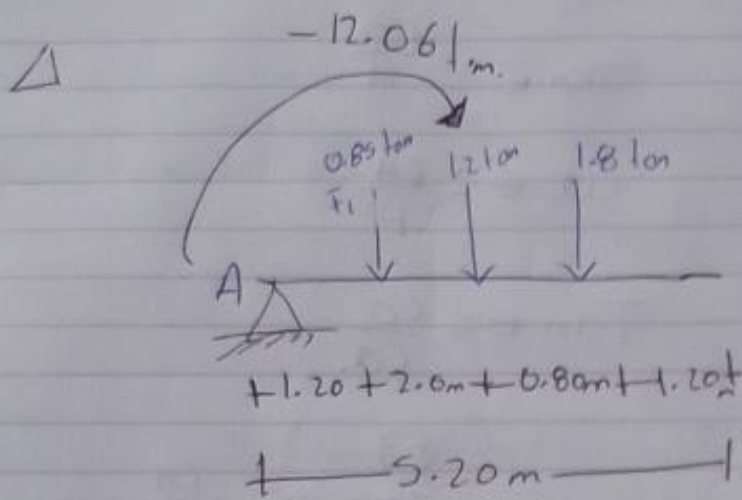 -12.06 t.m.
0.85 ton
1.2 ton
1.8 ton
F1
A
1.20 + 2.0m + 0.80m + 1.20m
5.20m